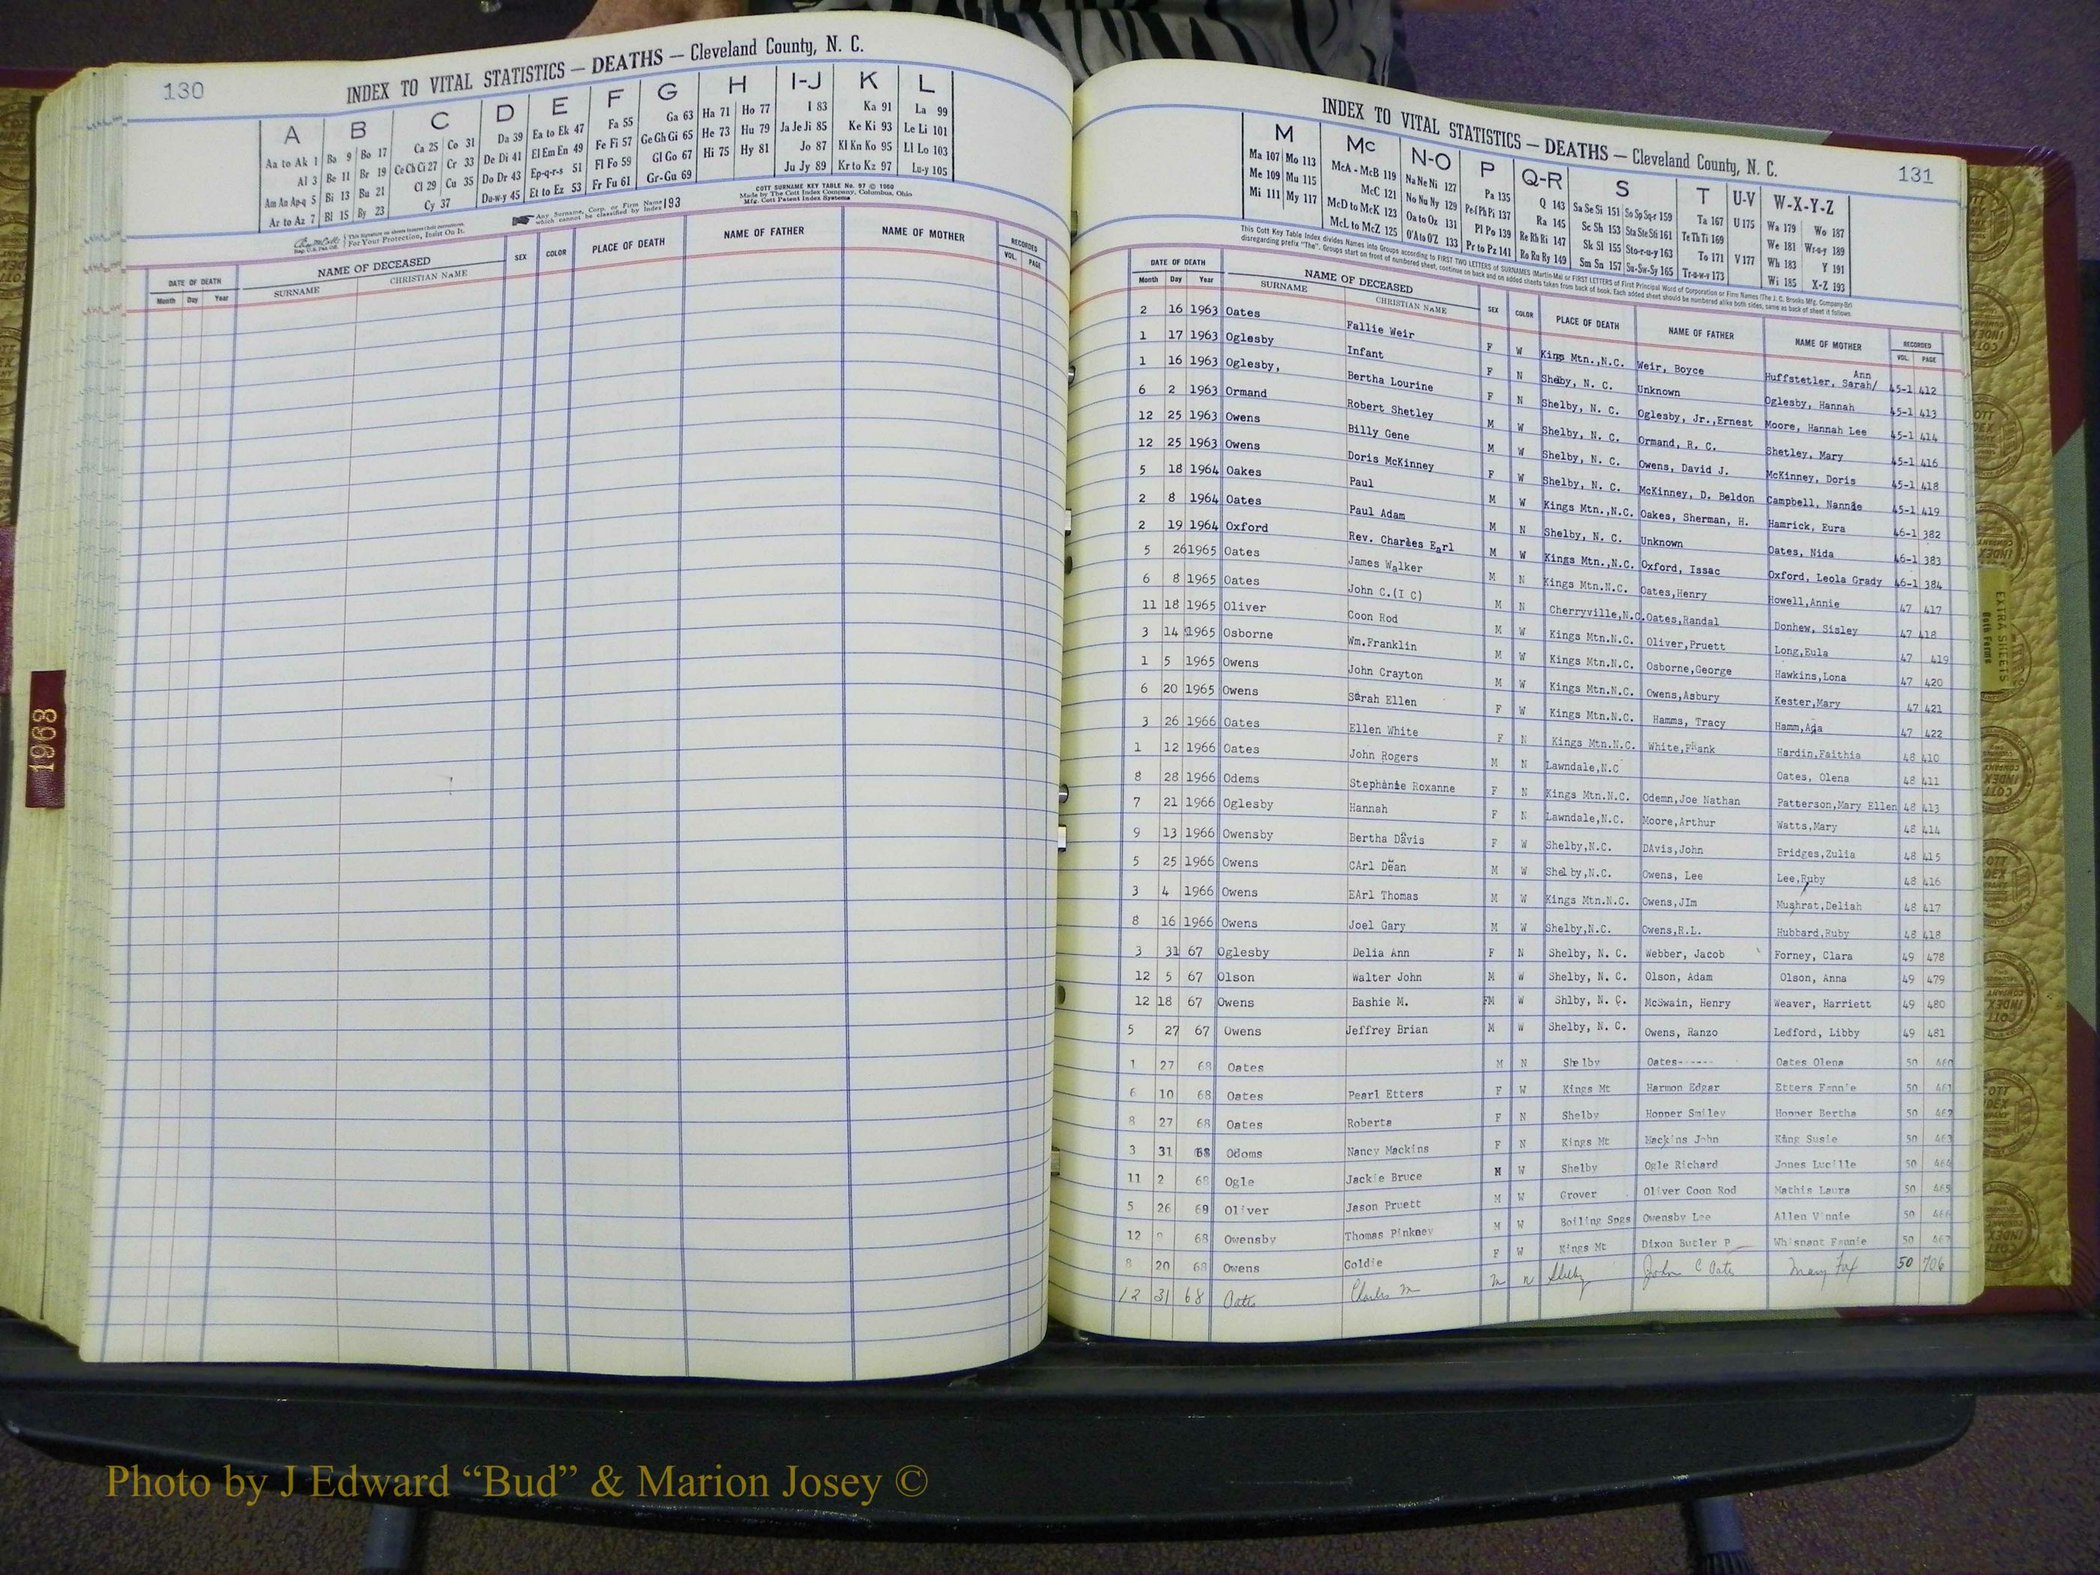 130
INDEX TO VITAL STATISTICS — DEATHS — Cleveland County, N. C.
A B C D E F G H I-J K L
Aa to Ak 1 Ba 9 Bo 17 Ca 25 Co 31 Da 39 Ea to Ek 47 Fa 55 Ga 63 Ha 71 Ho 77 I 83 Ka 91 La 99
Al 3 Be 11 Br 19 Ce Ch Ci 27 Cr 33 De Di 41 El Em En 49 Fe Fi 57 Ge Gh Gi 65 He 73 Hu 79 Ja Je Ji 85 Ke Ki 93 Le Li 101
Am An Ap-q 5 Bi 13 Bu 21 Cl 29 Cu 35 Do Dr 43 Ep-q-r-s 51 Fl Fo 59 Gl Go 67 Hi 75 Hy 81 Jo 87 Kl Kn Ko 95 Ll Lo 103
Ar to Az 7 Bl 15 By 23 Cy 37 Du-w-y 45 Et to Ez 53 Fr Fu 61 Gr-Gu 69 Ju Jy 89 Kr to Kz 97 Lu-y 105
COTT SURNAME KEY TABLE No. 97 © 1960
Made by The Cott Index Company, Columbus, Ohio
Mfg. Cott Patent Index Systems
Any Surname, Corp. or Firm Name which cannot be classified by Index 193
For Your Protection, Insist On It.
DATE OF DEATH NAME OF DECEASED SEX COLOR PLACE OF DEATH NAME OF FATHER NAME OF MOTHER RECORDED
Month Day Year SURNAME CHRISTIAN NAME VOL. PAGE
1968
131
INDEX TO VITAL STATISTICS — DEATHS — Cleveland County, N. C.
M Mc N-O P Q-R S T U-V W-X-Y-Z
Ma 107 Mo 113 McA - McB 119 Na Ne Ni 127 Pa 135 Q 143 Sa Se Si 151 So Sp Sq-r 159 Ta 167 U 175 Wa 179 Wo 187
Me 109 Mu 115 McC 121 No Nu Ny 129 Pe Pf Ph Pi 137 Ra 145 Sc Sh 153 Sta Ste Sti 161 Te Th Ti 169 We 181 Wr-o-y 189
Mi 111 My 117 McD to McK 123 Oa to Oz 131 Pl Po 139 Re Rh Ri 147 Sk Sl 155 Sto-r-u-y 163 To 171 V 177 Wh 183 Y 191
McL to McZ 125 O'A to O'Z 133 Pr to Pz 141 Ro Ru Ry 149 Sm Sn 157 Su-Sw-Sy 165 Tr-u-w-v 173 Wi 185 X-Z 193
This Cott Key Table Index divides Names into Groups according to FIRST TWO LETTERS of SURNAMES (Martin-Ma) or FIRST LETTERS of First Principal Word of Corporation or Firm Names (The J. C. Brooks Mfg. Company-Br)
disregarding prefix "The". Groups start on front of numbered sheet, continue on back and on added sheets taken from back of book. Each added sheet should be numbered alike both sides, same as back of sheet it follows.
DATE OF DEATH NAME OF DECEASED SEX COLOR PLACE OF DEATH NAME OF FATHER NAME OF MOTHER RECORDED
Month Day Year SURNAME CHRISTIAN NAME VOL. PAGE
2 16 1963 Oates Fallie Weir F W Kings Mtn.,N.C. Weir, Boyce Huffstetler, Sarah/ Ann 45-1 412
1 17 1963 Oglesby Infant F N Shelby, N. C. Unknown Oglesby, Hannah 45-1 413
1 16 1963 Oglesby, Bertha Lourine F N Shelby, N. C. Oglesby, Jr.,Ernest Moore, Hannah Lee 45-1 414
6 2 1963 Ormand Robert Shetley M W Shelby, N. C. Ormand, R. C. Shetley, Mary 45-1 416
12 25 1963 Owens Billy Gene M W Shelby, N. C. Owens, David J. McKinney, Doris 45-1 418
12 25 1963 Owens Doris McKinney F W Shelby, N. C. McKinney, D. Beldon Campbell, Nannie 45-1 419
5 18 1964 Oakes Paul M W Kings Mtn.,N.C. Oakes, Sherman, H. Hamrick, Eura 46-1 382
2 8 1964 Oates Paul Adam M N Shelby, N. C. Unknown Oates, Nida 46-1 383
2 19 1964 Oxford Rev. Charles Earl M W Kings Mtn.,N.C. Oxford, Issac Oxford, Leola Grady 46-1 384
5 26 1965 Oates James Walker M N Kings Mtn.N.C. Oates,Henry Howell,Annie 47 417
6 8 1965 Oates John C.(I C) M N Cherryville,N.C. Oates,Randal Donhew, Sisley 47 418
11 18 1965 Oliver Coon Rod M W Kings Mtn.N.C. Oliver,Pruett Long,Eula 47 419
3 14 1965 Osborne Wm.Franklin M W Kings Mtn.N.C. Osborne,George Hawkins,Lona 47 420
1 5 1965 Owens John Crayton M W Kings Mtn.N.C. Owens,Asbury Kester,Mary 47 421
6 20 1965 Owens Sarah Ellen F W Kings Mtn.N.C. Hamms, Tracy Hamm,Ada 47 422
3 26 1966 Oates Ellen White F N Kings Mtn.N.C. White,Frank Hardin,Faithia 48 410
1 12 1966 Oates John Rogers M N Lawndale,N.C Oates, Olena 48 411
8 28 1966 Odems Stephanie Roxanne F N Kings Mtn.N.C. Odemn,Joe Nathan Patterson,Mary Ellen 48 413
7 21 1966 Oglesby Hannah F N Lawndale,N.C. Moore,Arthur Watts,Mary 48 414
9 13 1966 Owensby Bertha Davis F W Shelby,N.C. DAvis,John Bridges,Zulia 48 415
5 25 1966 Owens CArl Dean M W Shelby,N.C. Owens, Lee Lee,Ruby 48 416
3 4 1966 Owens EArl Thomas M W Kings Mtn.N.C. Owens,JIm Mushrat,Deliah 48 417
8 16 1966 Owens Joel Gary M W Shelby,N.C. Owens,R.L. Hubbard,Ruby 48 418
3 31 67 Oglesby Delia Ann F N Shelby, N. C. Webber, Jacob Forney, Clara 49 478
12 5 67 Olson Walter John M W Shelby, N. C. Olson, Adam Olson, Anna 49 479
12 18 67 Owens Bashie M. FM W Shlby, N. C. McSwain, Henry Weaver, Harriett 49 480
5 27 67 Owens Jeffrey Brian M W Shelby, N. C. Owens, Ranzo Ledford, Libby 49 481
1 27 68 Oates M N Shelby Oates------ Oates Olena 50 460
6 10 68 Oates Pearl Etters F W Kings Mt Harmon Edgar Etters Fannie 50 461
8 27 68 Oates Roberta F N Shelby Hopper Smiley Hopper Bertha 50 462
3 31 68 Odoms Nancy Mackins F N Kings Mt Mackins John King Susie 50 463
11 2 68 Ogle Jackie Bruce M W Shelby Ogle Richard Jones Lucille 50 464
5 26 68 Oliver Jason Pruett M W Grover Oliver Coon Rod Mathis Laura 50 465
12 68 Owensby Thomas Pinkney M W Boiling Spgs Owensby Lee Allen Vinnie 50 466
8 20 68 Owens Goldie F W Kings Mt Dixon Butler P Whisnant Fannie 50 467
12 31 68 Oates Charles M M N Shelby John C Oates Mary Fox 50 706
EXTRA SHEETS
Both Forms
Photo by J Edward “Bud” & Marion Josey ©